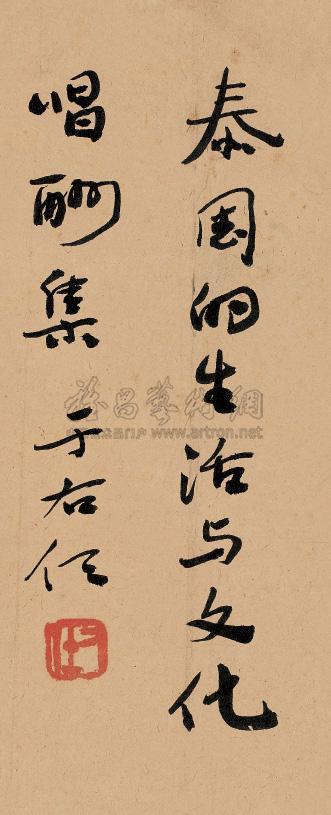 泰国的生活与文化
唱酬集 于右任
雅昌藝術網
www.artron.net